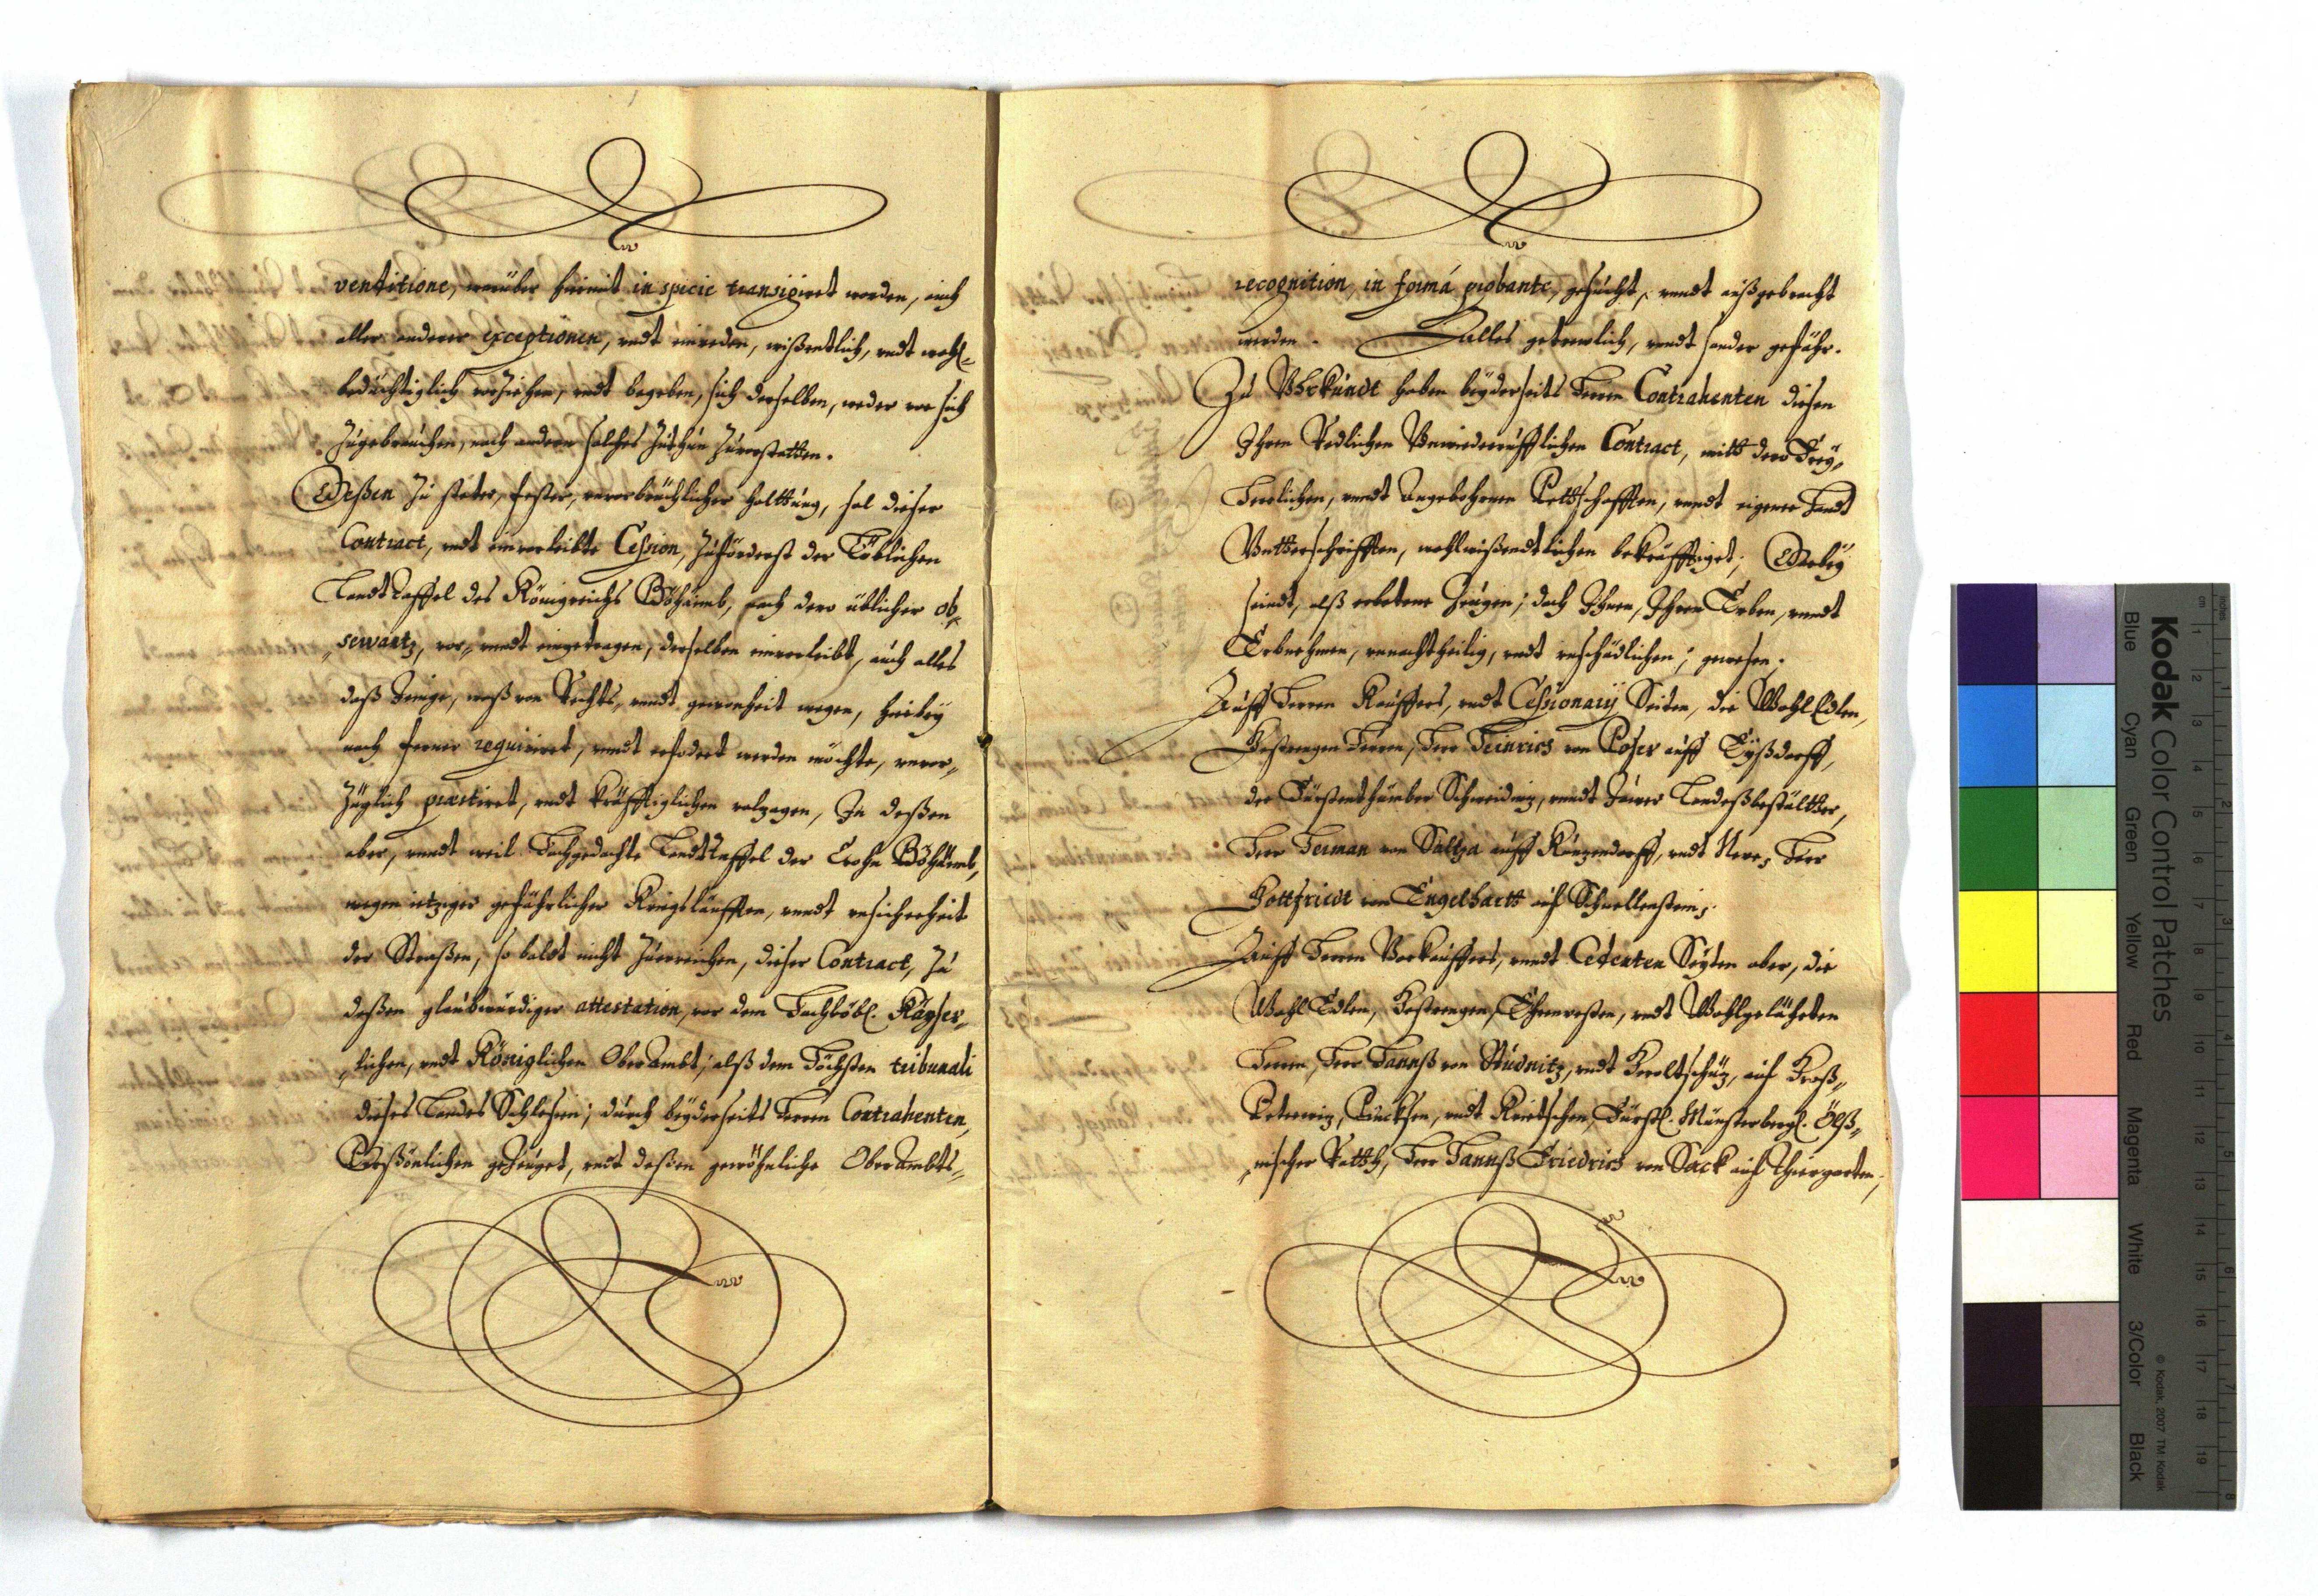 ventitione, worüber hiemit in specie transigiret worden, auch
aller anderer exceptionen, undt einreden, wißentlich, undt wohl-
bedächtiglich vorziehen, undt begeben, sich derselben, weder vor sich
zugebrauchen, noch andern solches zuthun zuverstatten.
Deßen zu steter, fester, unvorbrüchlicher halttung, sol dieser
Contract, undt einvorleibte Cession, zuförderst der Löblichen
Landt Taffel des Königreichs Böhaimb, nach dero üblicher ob-
servantz, vor- undt eingetragen, derselben einvorleibt, auch alles
daß Jenige, waß von Rechts, undt gewonheit wegen, hierbey
noch ferner requiriret, undt erfodert werden möchte, unvor-
züglich præstiret, undt kräfftiglichen volzogen, In deßen
aber, undt weil Hochgedachte Landt Taffel der Crohn Böhaimb,
wegen itziger gefährlicher Kriegsläufften, undt unsicherheit
der Straßen, so baldt nicht zuerreichen, dieser Contract, zu
deßen glaubwürdiger attestation, vor dem Hochlöbl. Kayser-
lichen, undt Königlichen Ober Ambt; alß dem Höchsten tribunali
dieses Landes Schlesien; durch beyderseits Herren Contrahenten,
Persönlichen gezeuget, undt deßen gewöhnliche Ober Ambts-
recognition, in formâ probante, gesucht, undt außgebracht
werden. Alles getrewlich, undt sonder gefähr.
Zu Uhrkundt haben beyderseits Herren Contrahenten diesen
Ihren Redlichen Unwiederrufflichen Contract, mitt dero Frey-
Herrlichen, undt Angebohrnen Pettschafften, undt eigener Handt
Untterschrifften, wohlwißendtlichen bekräfftiget; Darbey
seindt, alß erbetene Zeugen; doch Ihnen, Ihren Erben, undt
Erbnehmen, unnachtheilig, undt unschädlichen; gewesen.
Auff Herren Kauffers, undt Cessionarij Seiten, die WohlEdlen,
Gestrengen Herren, Herr Heinrich von Poser auff Eyßdorff,
der Fürstenthümber Schweidnitz, undt Jawer Landeßbestältter,
Herr Herman von Saltza auff Kuntzendorff, undt Herr
Gottfriedt von Engelhartt auf Schnellenstein;
Auff Herren Verkauffers, undt Cedenten Seyten aber, die
Wohl Edlen, Gestrengen, Ehrenvesten, undt Wohlgelährten
Herren, Herr Hannß von Studnitz, undt Geroltschütz, auf Groß-
undt Fürstl. Münsterbergl. Ölß-
nischer Rath, Herr Hannß Friedrich von Sack auf Thiergarten,
Kodak Color Control Patches
Blue Cyan Green Yellow Red Magenta White 3/Color Black
© Kodak, 2007 TM: Kodak
cm 1 2 3 4 5 6 7 8 9 10 11 12 13 14 15 16 17 18 19
inches 1 2 3 4 5 6 7 8